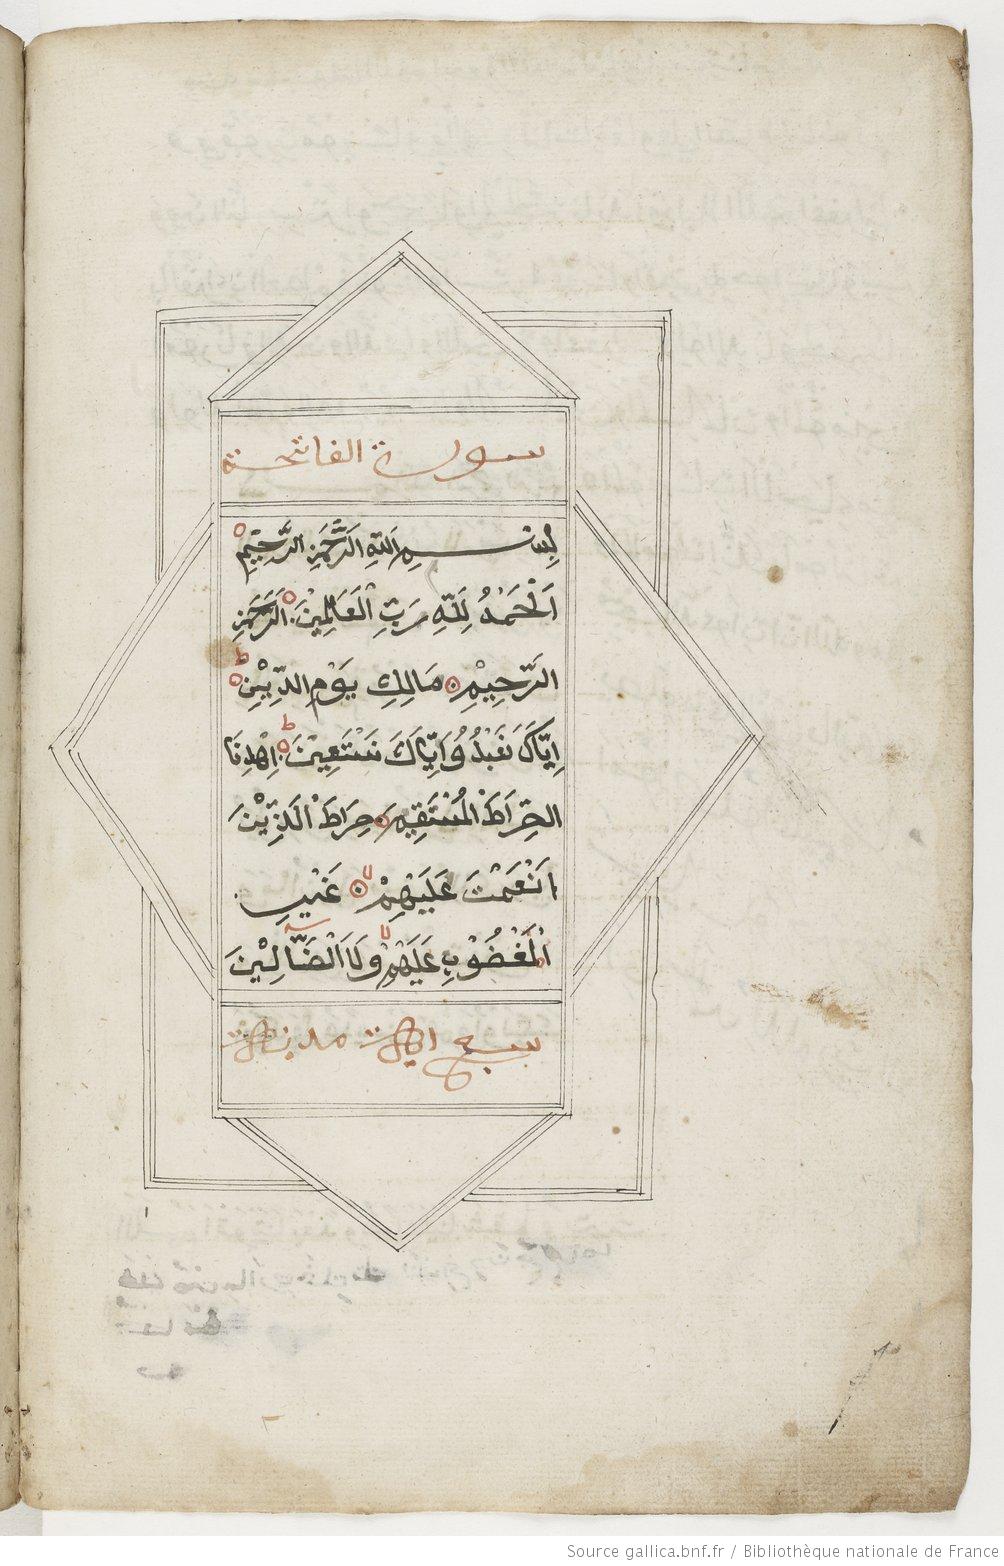 سورة الفاتحة
بِسْمِ اللَّهِ الرَّحْمَٰنِ الرَّحِيْمِ
اَلْحَمْدُ لِلّٰهِ رَبِّ الْعَالَمِيْنَ الرَّحْمٰنِ
الرَّحِيْمِ مَالِكِ يَوْمِ الدِّيْنِ ط
اِيَّاكَ نَعْبُدُ وَاِيَّاكَ نَسْتَعِيْنُ ط اِهْدِنَا
الصِّرَاطَ الْمُسْتَقِيْمَ صِرَاطَ الَّذِيْنَ
اَنْعَمْتَ عَلَيْهِمْ لا غَيْرِ
الْمَغْضُوْبِ عَلَيْهِمْ وَلَا الضَّآلِّيْنَ
سبع ايات مدنية
Source gallica.bnf.fr / Bibliothèque nationale de France